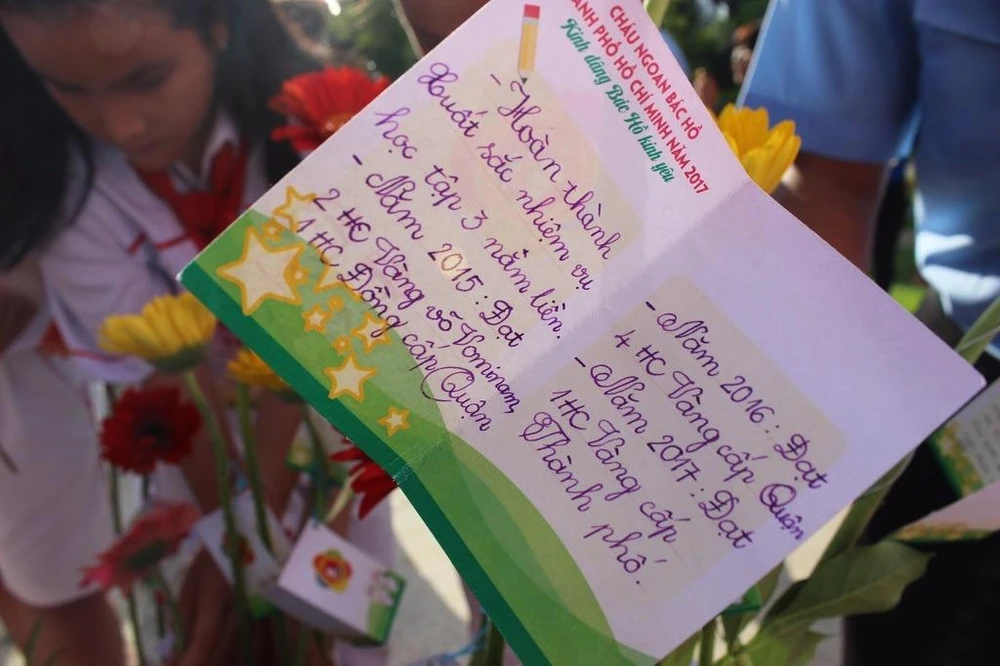 CHÁU NGOAN BÁC HỒ
ÀNH PHỐ HỒ CHÍ MINH NĂM 2017
Kính dâng Bác Hồ kính yêu
- Hoàn thành
xuất sắc nhiệm vụ
học tập 3 năm liền.
- Năm 2015 : Đạt
2 HC Vàng võ Vominam,
1 HC Đồng cấp Quận
- Năm 2016 : Đạt
4 HC Vàng cấp Quận
- Năm 2017 : Đạt
1HC Vàng cấp
Thành phố.